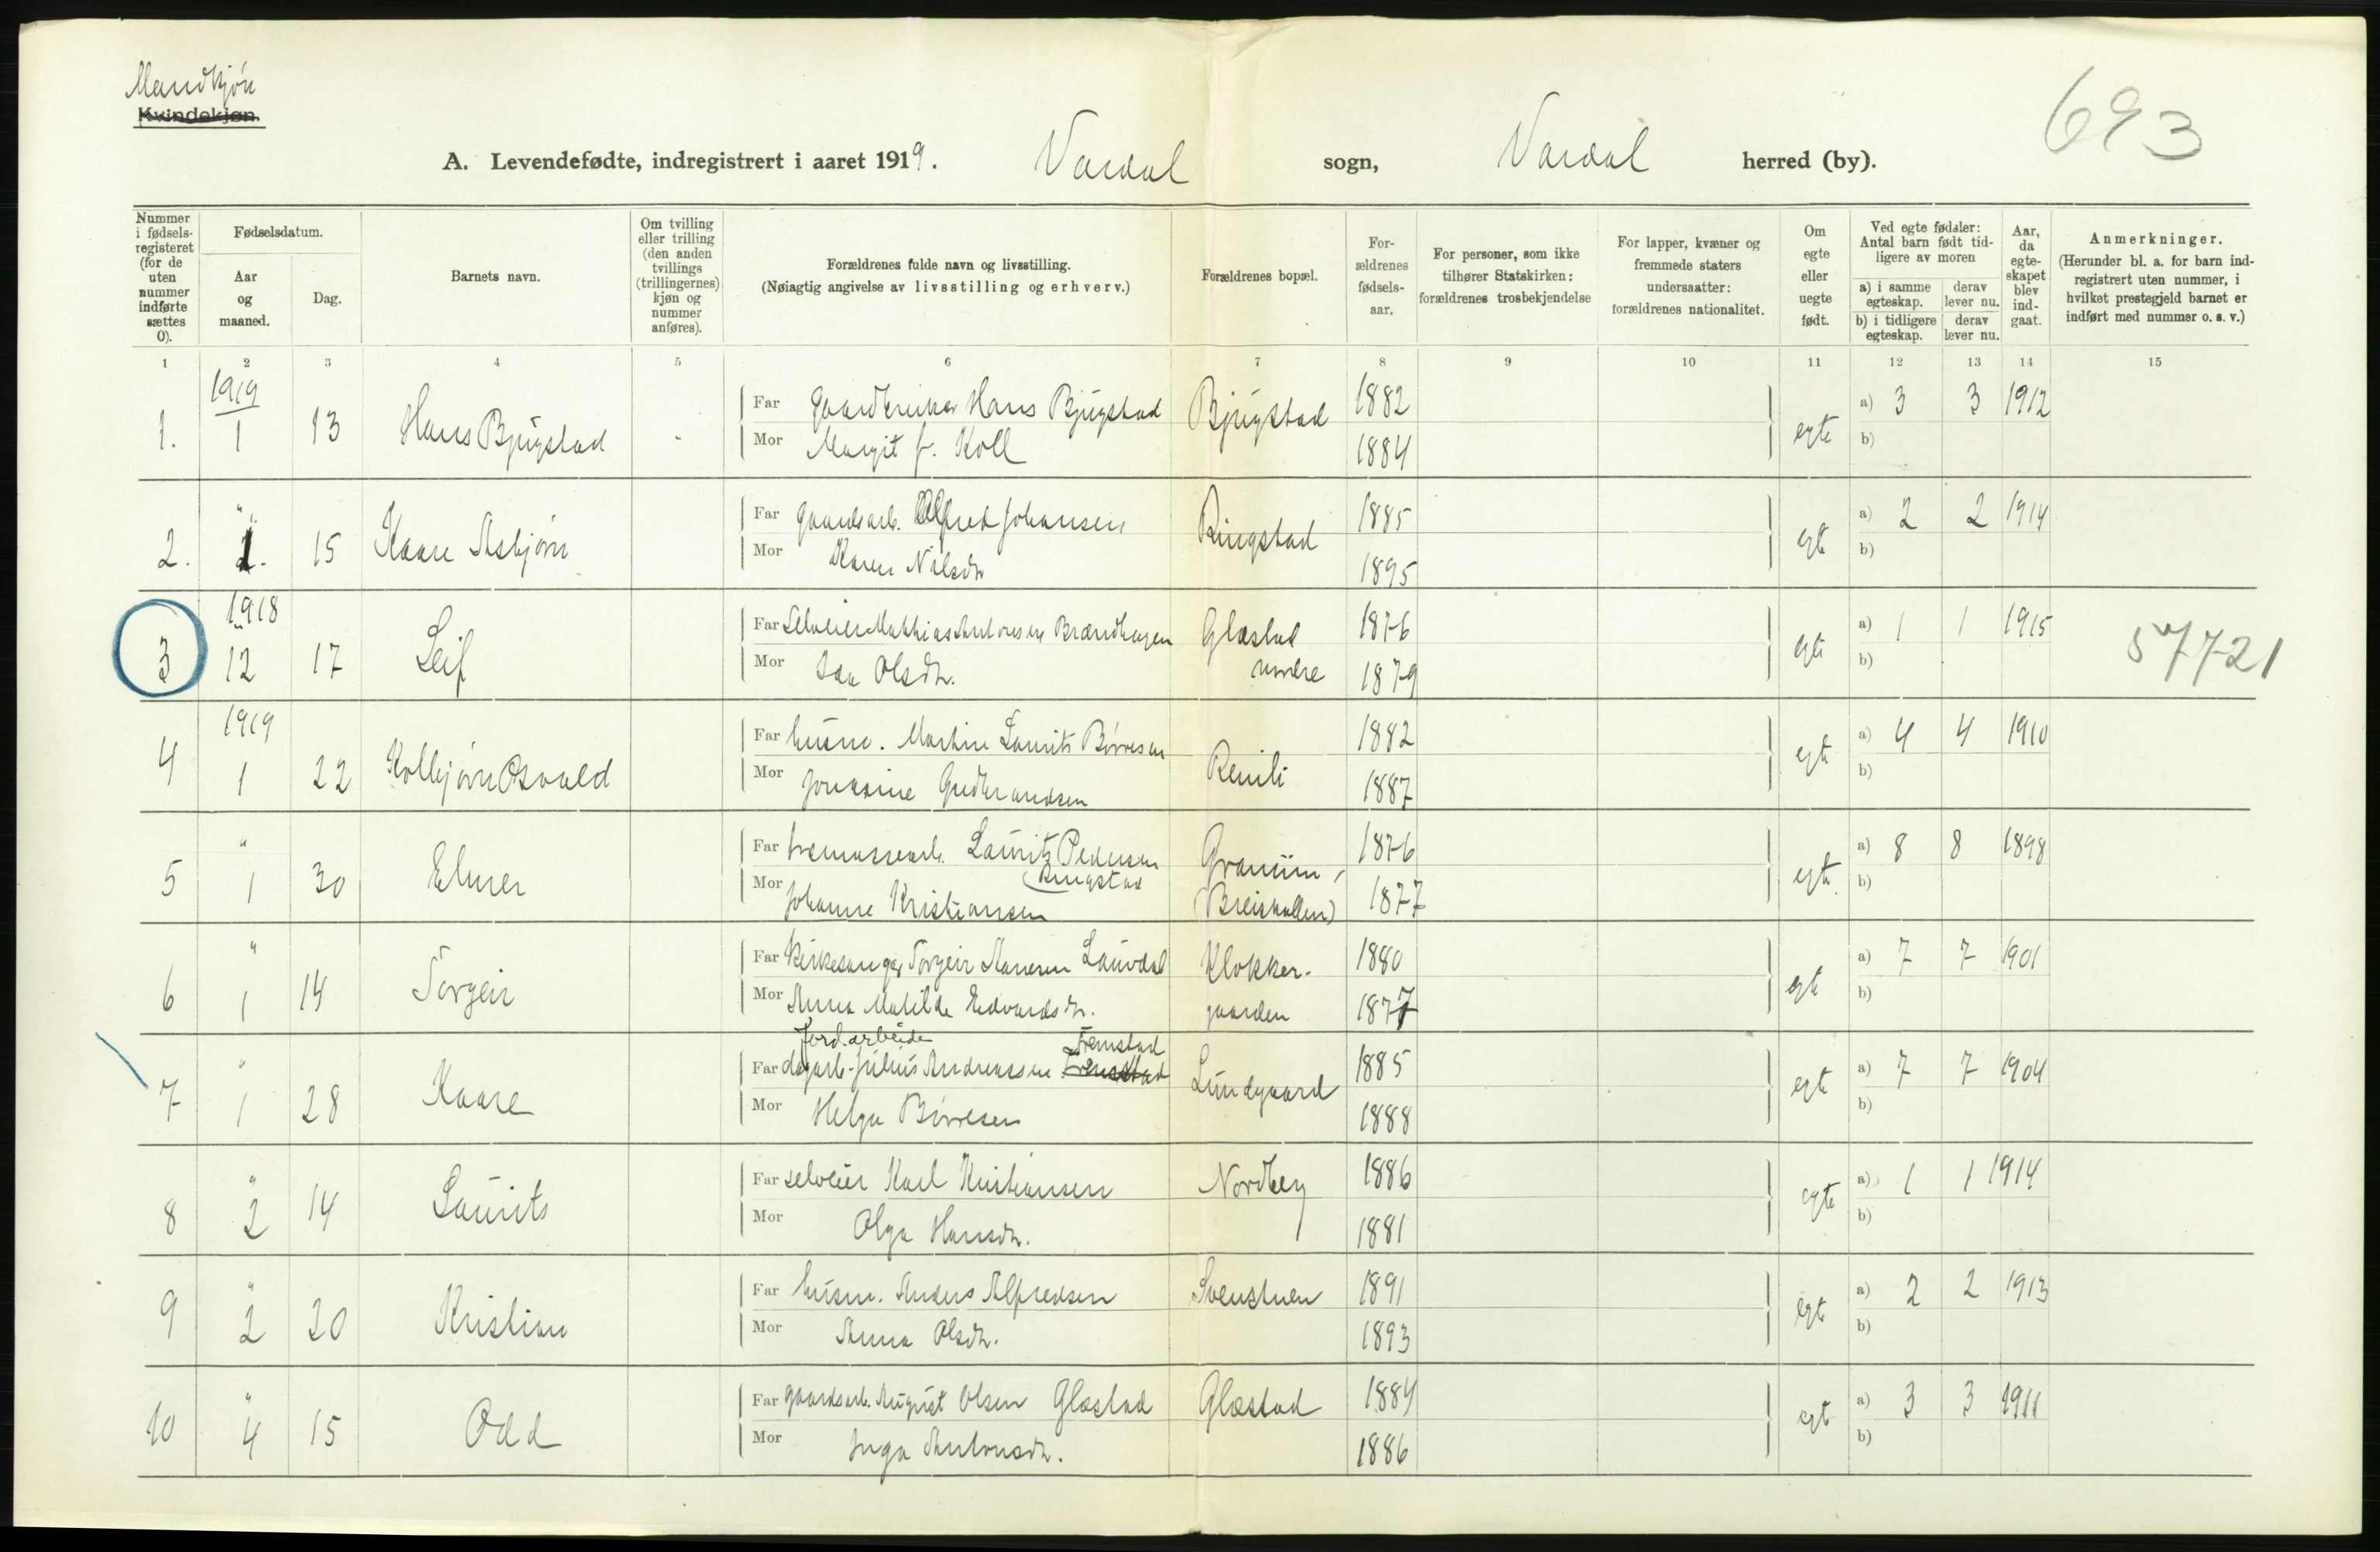 Mandkjøn
Kvindekjøn.
693
A. Levendefødte, indregistrert i aaret 1919. Vardal sogn, Vardal herred (by).
Nummer i fødsels-registeret (for de uten nummer indførte sættes 0).
Fødselsdatum.
Aar og maaned.
Dag.
Barnets navn.
Om tvilling eller trilling (den anden tvillings (trillingernes) kjøn og nummer anføres).
Forældrenes fulde navn og livsstilling.
(Nøiagtig angivelse av livsstilling og erhverv.)
Forældrenes bopæl.
For-ældrenes fødsels-aar.
For personer, som ikke tilhører Statskirken: forældrenes trosbekjendelse
For lapper, kvæner og fremmede staters undersaatter: forældrenes nationalitet.
Om egte eller uegte født.
Ved egte fødsler: Antal barn født tid-ligere av moren
a) i samme egteskap. derav lever nu.
b) i tidligere egteskap. derav lever nu.
Aar, da egte-skapet blev ind-gaat.
Anmerkninger.
(Herunder bl. a. for barn ind-registrert uten nummer, i hvilket prestegjeld barnet er indført med nummer o. s. v.)
1 2 3 4 5 6 7 8 9 10 11 12 13 14 15
1919
1. 1 13 Hans Bjugstad - Far gaardbruker Hans Bjugstad Bjugstad 1882 egte a) 3 3 1912
Mor Margit f. Koll 1884 b)
2. " 1. 15 Kaare Asbjørn Far gaardsarb. Alfred Johansen Ringstad 1885 egte a) 2 2 1914
Mor Karen Nilsdtr 1895 b)
1918
3 12 17 Leif Far Selveier Mathias Antonsen Brændhagen Glæstad 1876 egte a) 1 1 1915 57721
Mor Ida Olsdtr. undre 1879 b)
1919
4 1 22 Kolbjørn Osvald Far husm. Martin Laurits Børresen 1882 egte a) 4 4 1910
Mor Gudbrandsen 1887 b)
5 " 1 30 Elmer Far Laurits Pedersen 1876 egte a) 8 8 1898
(Ringstad
Mor Johanne Kristiansen 1877 b)
6 " 1 14 Torgeir Far Kirkesanger Torgeir Lauvdal Klokker- 1880 egte a) 7 7 1901
Mor Anna Matilde Edvardsdtr. gaarden 1877 b)
Jord.arbeide Fremstad
7 " 1 28 Kaare Far dagarb. Julius Andreassen Lundgaard 1885 egte a) 7 7 1904
Mor Helga Børresen 1888 b)
8 " 2 14 Laurits Far selveier Karl Kristiansen Nordberg 1886 egte a) 1 1 1914
Mor Olga Hansdtr. 1881 b)
9 " 2 20 Kristian Far husm. Anders Alfredsen Svenstuen 1891 egte a) 2 2 1913
Mor Anna Olsdtr. 1893 b)
10 " 4 15 Odd Far gaardsarb. August Olsen Glæstad Glæstad 1884 egte a) 3 3 1911
Mor Inga Antonsdtr. 1886 b)